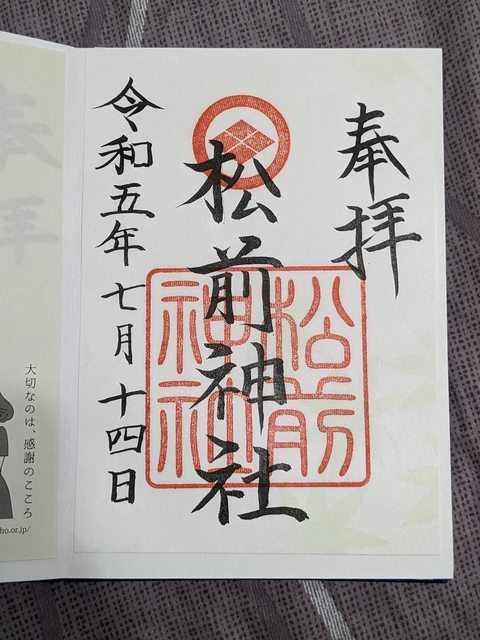 奉拝
松前神社
松前神社
令和五年七月十四日
奉拝
大切なのは、感謝のこころ
ho.or.jp/